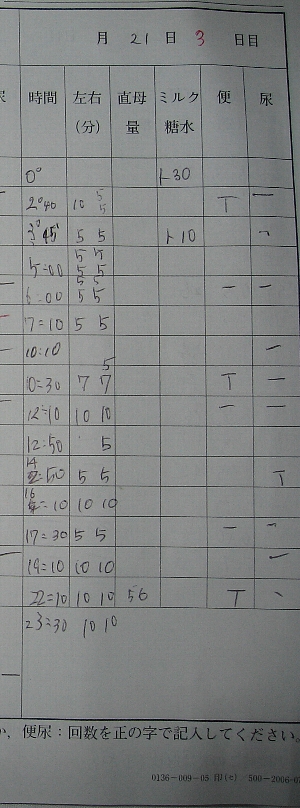 月 21 日 3 日目
尿 時間 左右(分) 直母量 ミルク糖水 便 尿
0° ト30
2°40 10 5 5 T 一
3°45 5 5 ト10
5:00 5 5 5 5
6:00 5 5 5 5 一 一
7=10 5 5
10:10 一
10=30 7 7 5 T 一
12=10 10 10 一 一
12:50 5
14 :50 5 5 T
16 =10 10 10
17=30 5 5 一
19=10 10 10 一
22=10 10 10 56 T
23=30 10 10
便尿：回数を正の字で記入してください。
0136-009-05